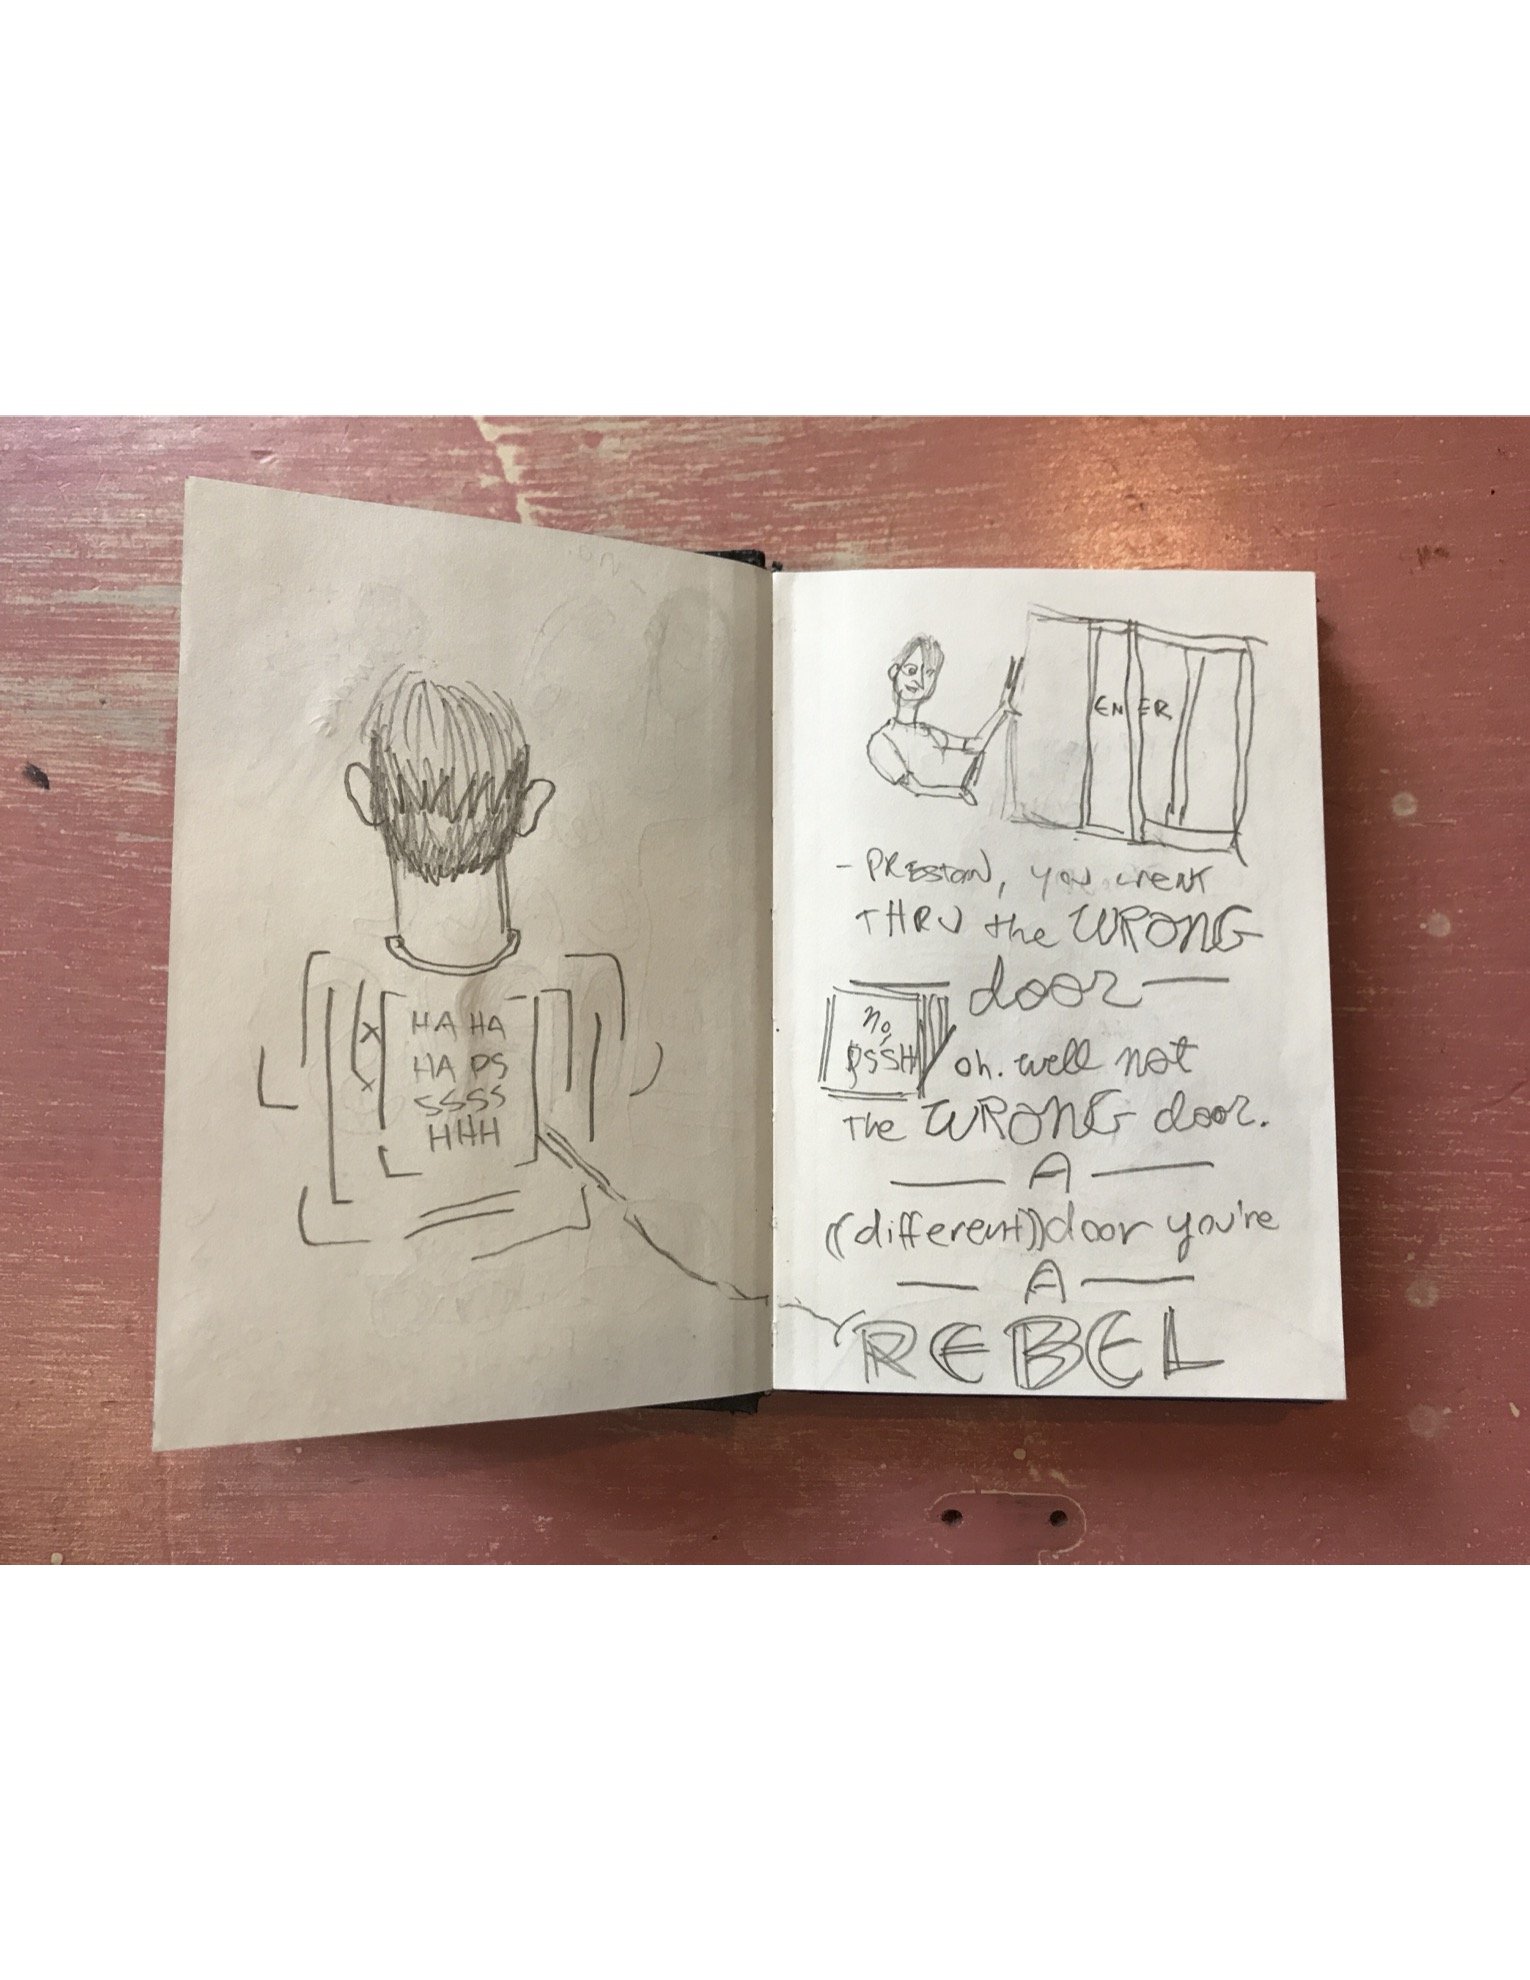 HA HA
HA PS
SSSS
HHH
EN ER
- PRESTON, you went
THRU the WRONG
door —
no,
PSSH
oh. well not
The WRONG door.
— A —
((different)) door you're
— A —
REBEL